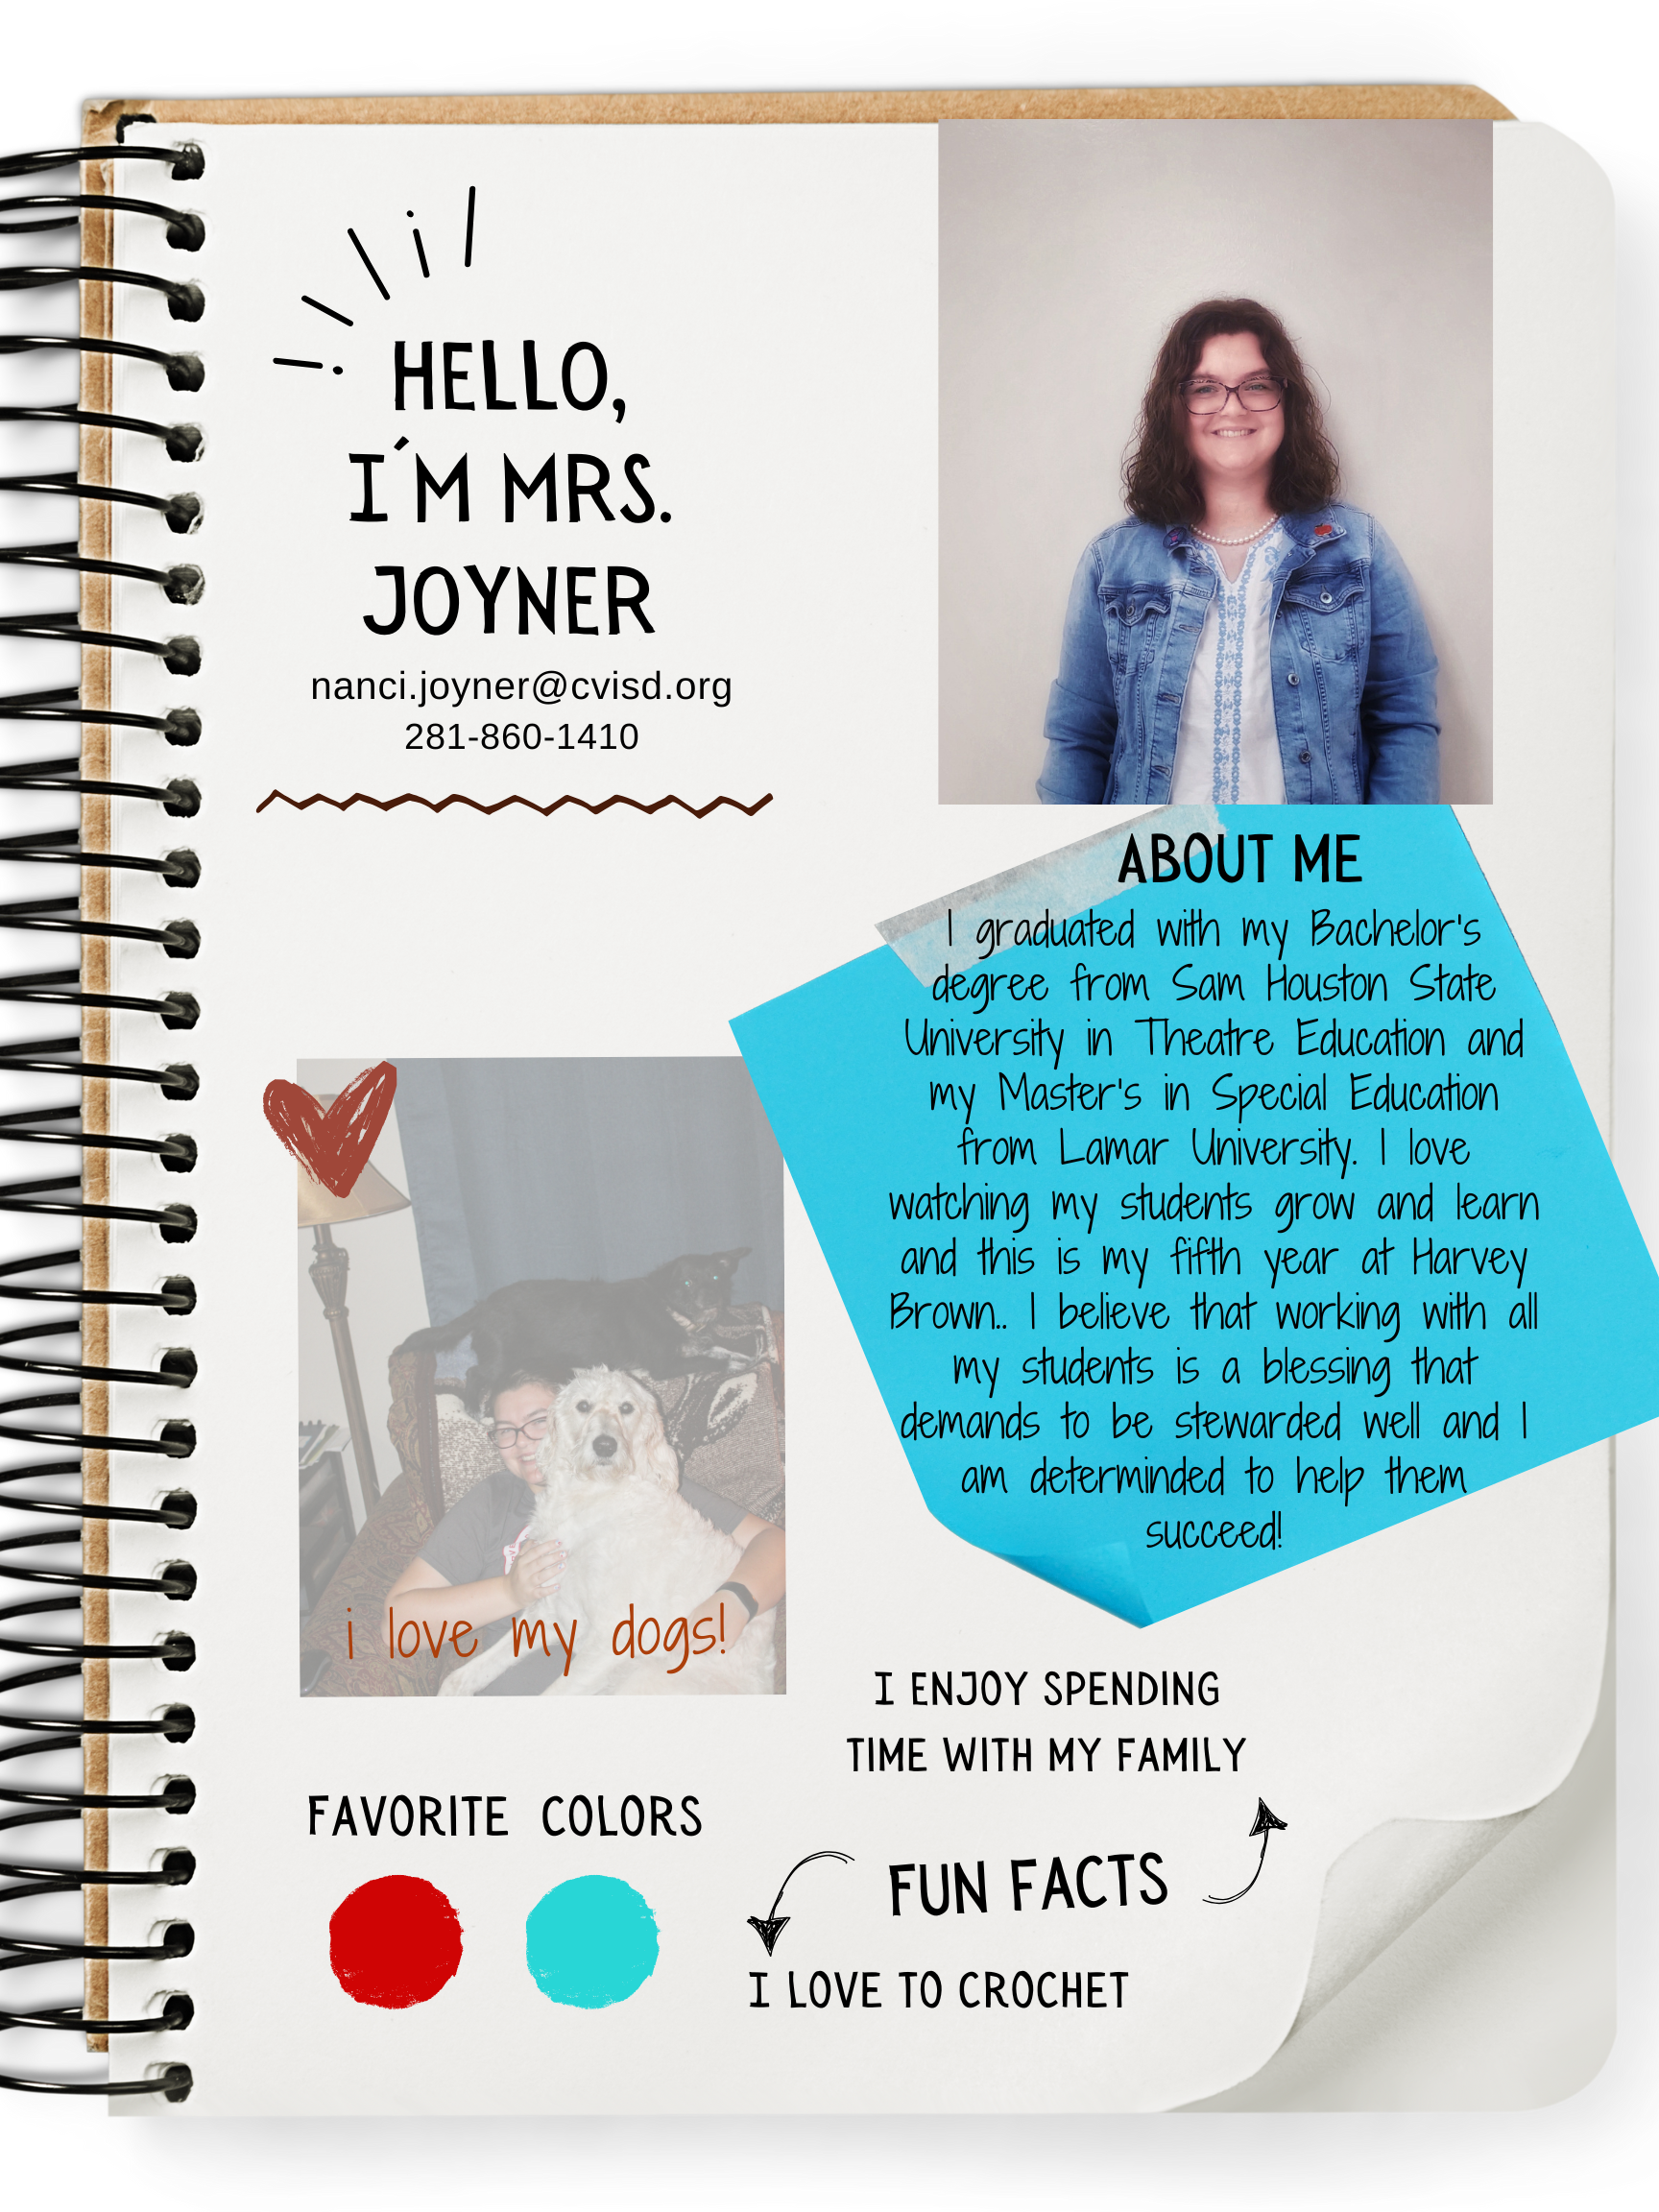 HELLO,
I´M MRS.
JOYNER
nanci.joyner@cvisd.org
281-860-1410
ABOUT ME
I graduated with my Bachelor's
degree from Sam Houston State
University in Theatre Education and
my Master's in Special Education
from Lamar University. I love
watching my students grow and learn
and this is my fifth year at Harvey
Brown.. I believe that working with all
my students is a blessing that
demands to be stewarded well and I
am determinded to help them
succeed!
i love my dogs!
I ENJOY SPENDING
TIME WITH MY FAMILY
FAVORITE COLORS
FUN FACTS
I LOVE TO CROCHET